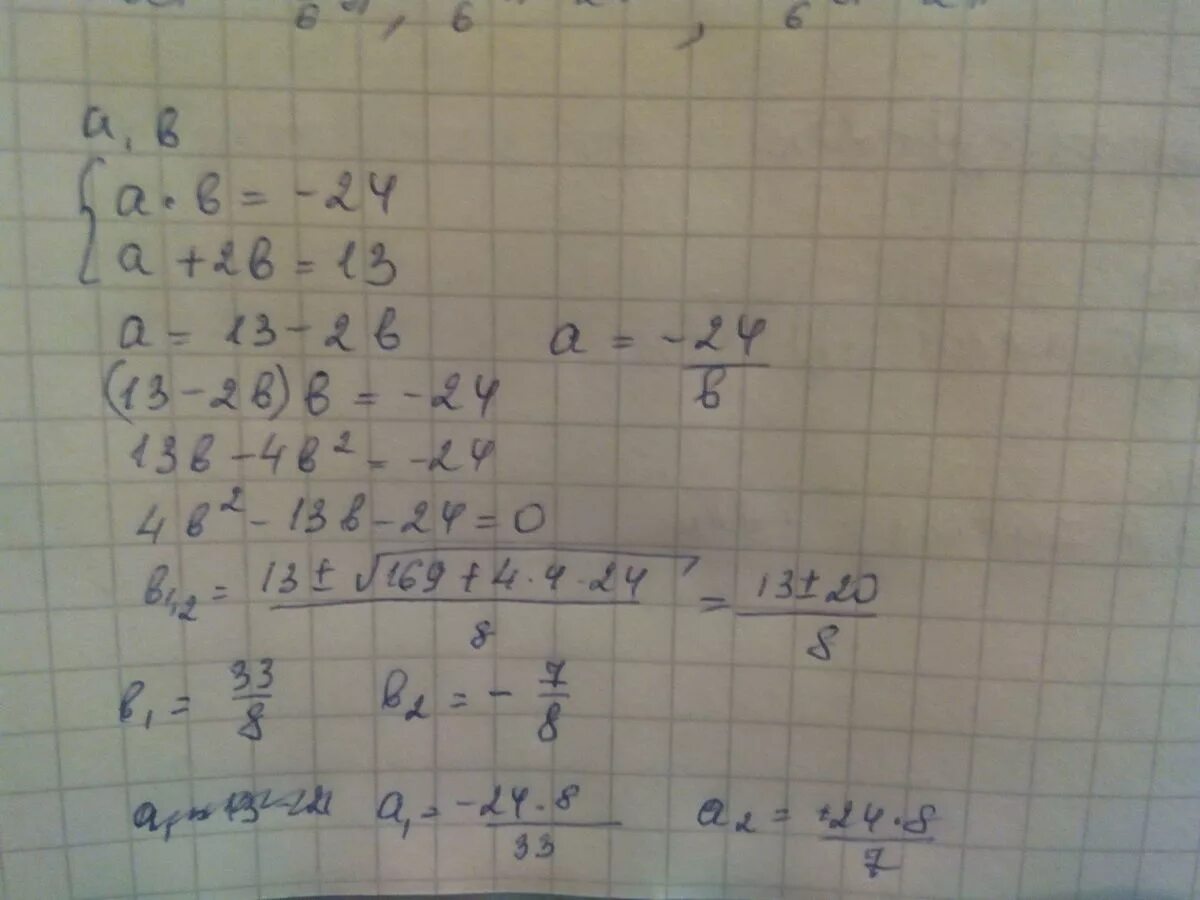 a, в
{ a · в = -24
a + 2в = 13
a = 13 - 2в a = -24/в
(13 - 2в) в = -24
13в - 4в² = -24
4в² - 13в - 24 = 0
в₁,₂ = (13 ± √(169 + 4 · 4 · 24))/8 = (13 ± 20)/8
в₁ = 33/8 в₂ = - 7/8
a₁ = (-24 · 8)/33 a₂ = (+24 · 8)/7